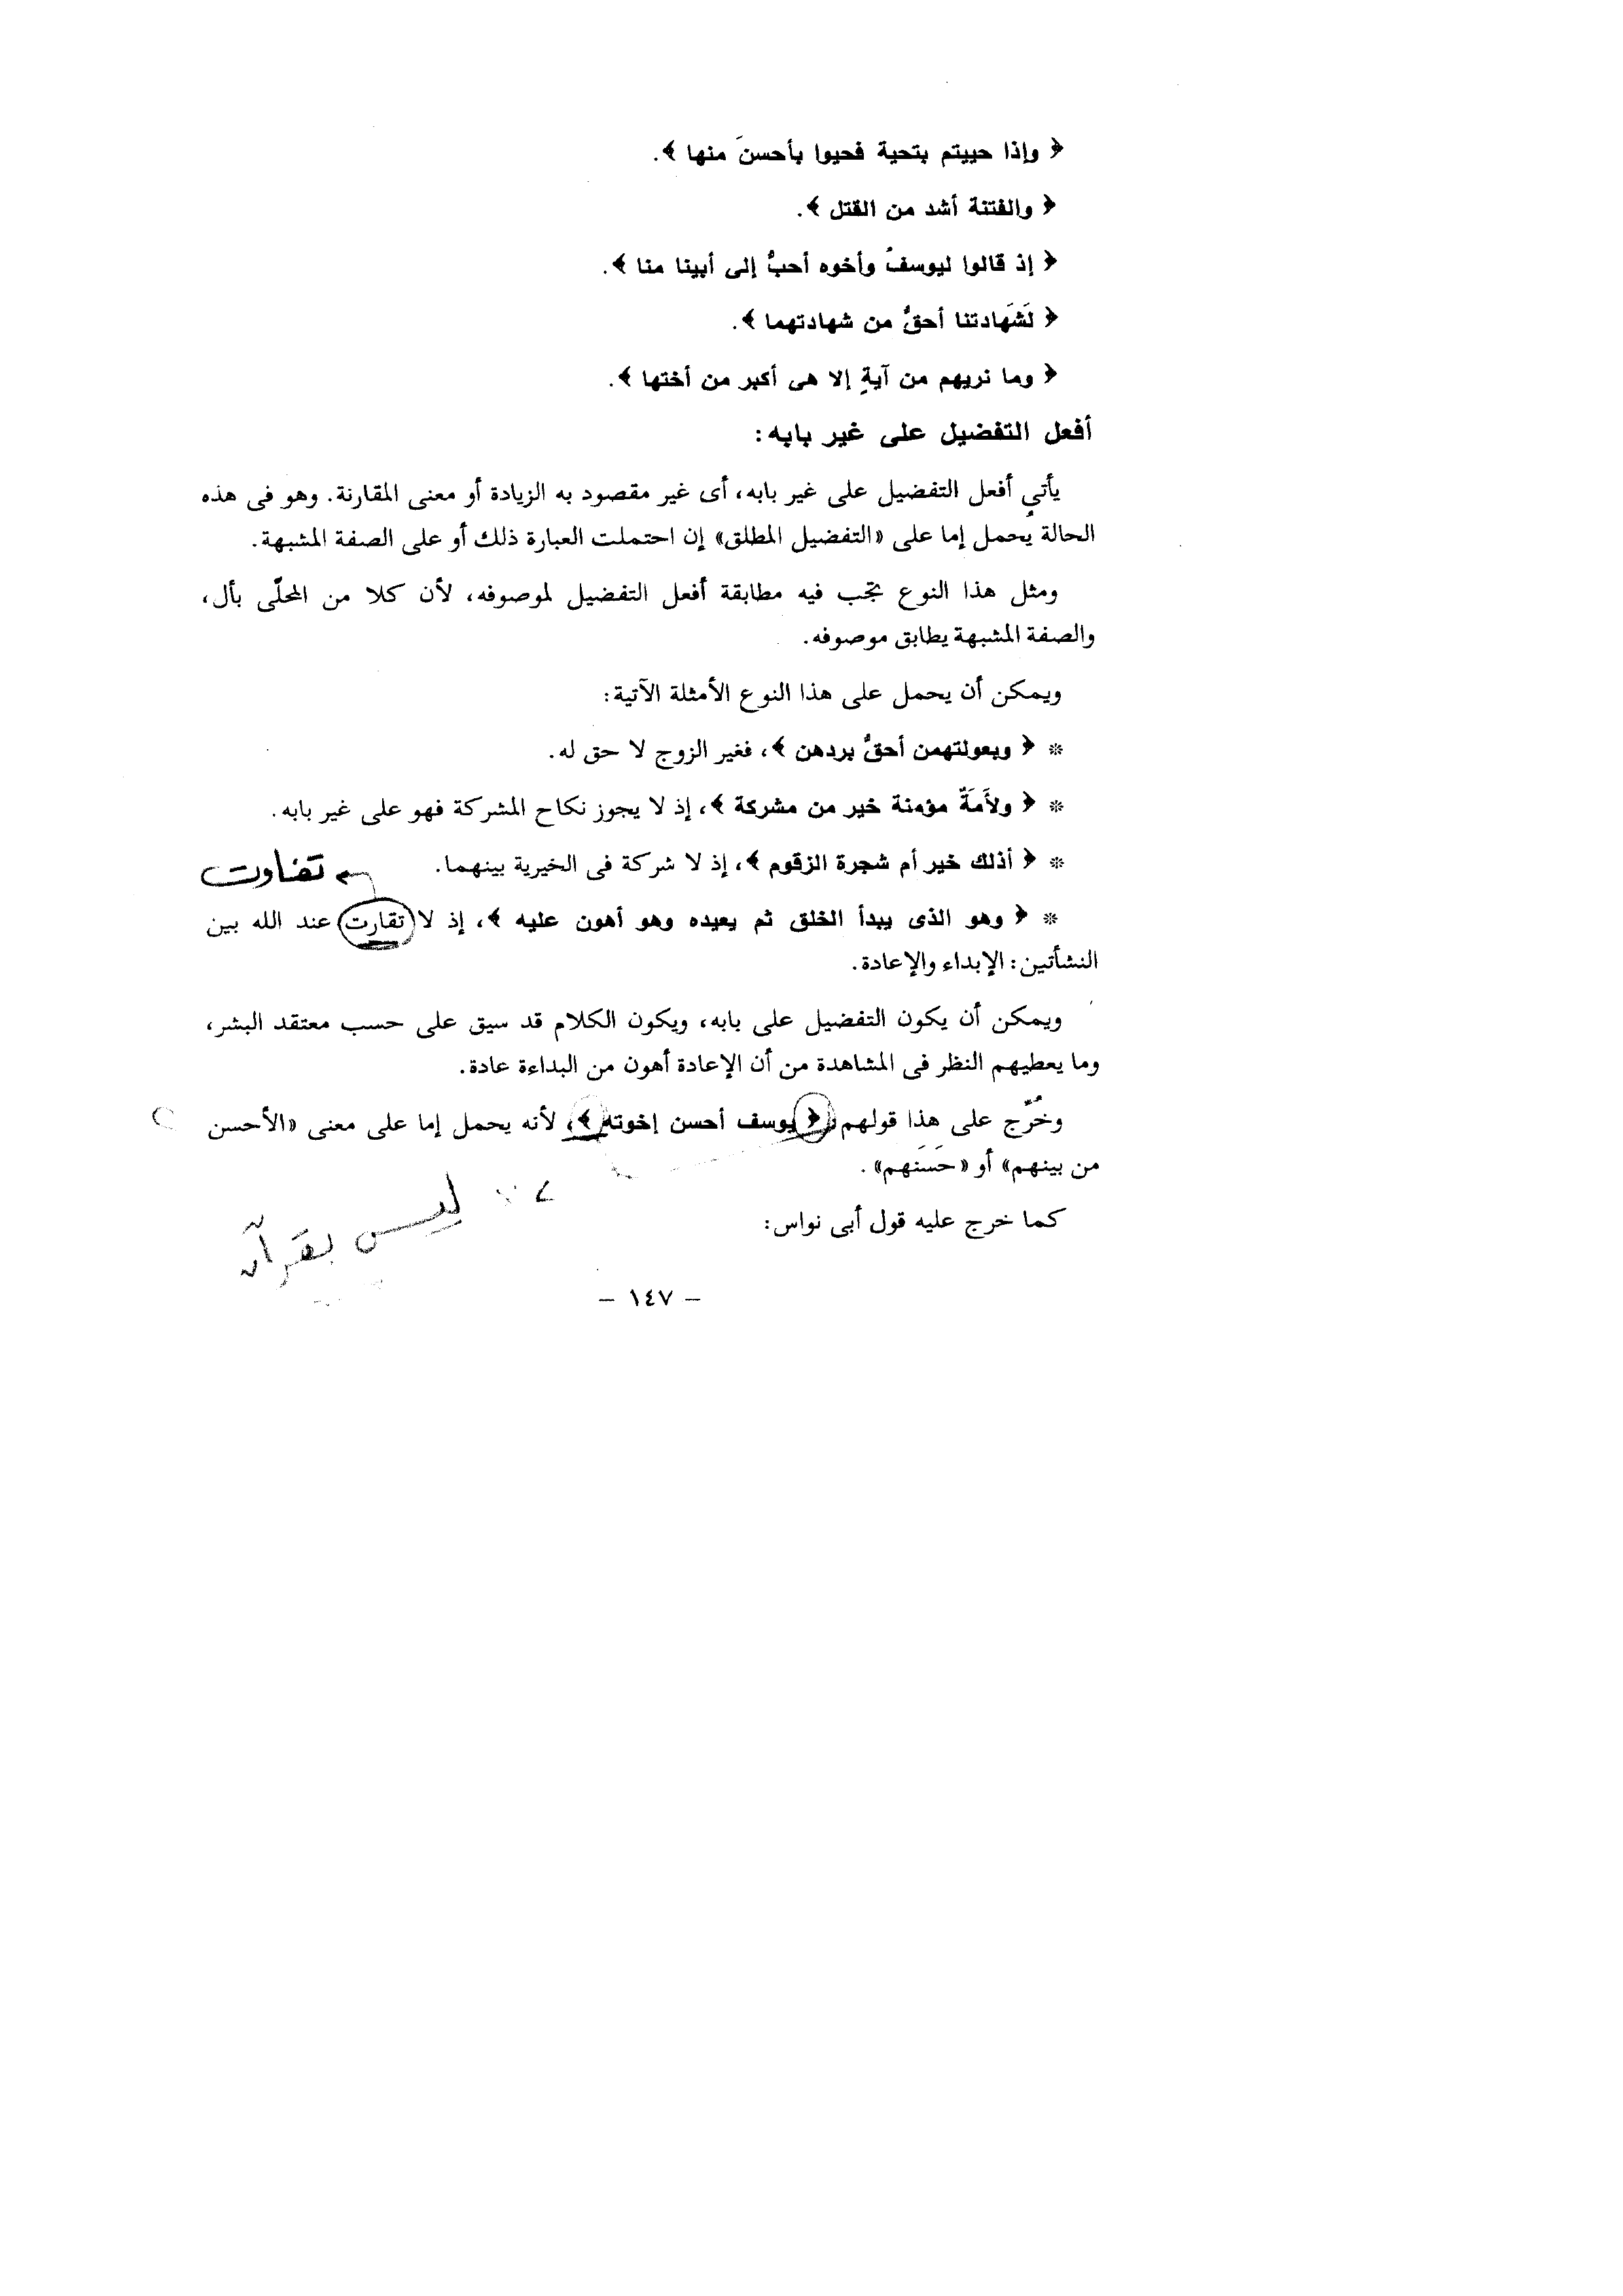 ﴿ وإذا حييتم بتحية فحيوا بأحسنَ منها ﴾.
﴿ والفتنة أشد من القتل ﴾.
﴿ إذ قالوا ليوسفُ وأخوه أحبُّ إلى أبينا منا ﴾.
﴿ لَشَهادتنا أحقُّ من شهادتهما ﴾.
﴿ وما نريهم من آيةٍ إلا هى أكبر من أختها ﴾.
أفعل التفضيل على غير بابه:
يأتي أفعل التفضيل على غير بابه، أى غير مقصود به الزيادة أو معنى المقارنة. وهو فى هذه
الحالة يُحمل إما على «التفضيل المطلق» إن احتملت العبارة ذلك أو على الصفة المشبهة.
ومثل هذا النوع تجب فيه مطابقة أفعل التفضيل لموصوفه، لأن كلا من المحلّى بأل،
والصفة المشبهة يطابق موصوفه.
ويمكن أن يحمل على هذا النوع الأمثلة الآتية:
* ﴿ وبعولتهمن أحقُّ بردهن ﴾، فغير الزوج لا حق له.
* ﴿ ولأَمَةٌ مؤمنة خير من مشركة ﴾، إذ لا يجوز نكاح المشركة فهو على غير بابه.
* ﴿ أذلك خير أم شجرة الزقوم ﴾، إذ لا شركة فى الخيرية بينهما.
تفاوت
* ﴿ وهو الذى يبدأ الخلق ثم يعيده وهو أهون عليه ﴾، إذ لا تقارت عند الله بين
النشأتين: الإبداء والإعادة.
ويمكن أن يكون التفضيل على بابه، ويكون الكلام قد سيق على حسب معتقد البشر،
وما يعطيهم النظر فى المشاهدة من أن الإعادة أهون من البداءة عادة.
وخُرّج على هذا قولهم: ﴿ يوسف أحسن إخوته ﴾، لأنه يحمل إما على معنى «الأحسن
من بينهم» أو «حَسَنهم».
ليس بقرآن
كما خرج عليه قول أبى نواس:
– ١٤٧ –